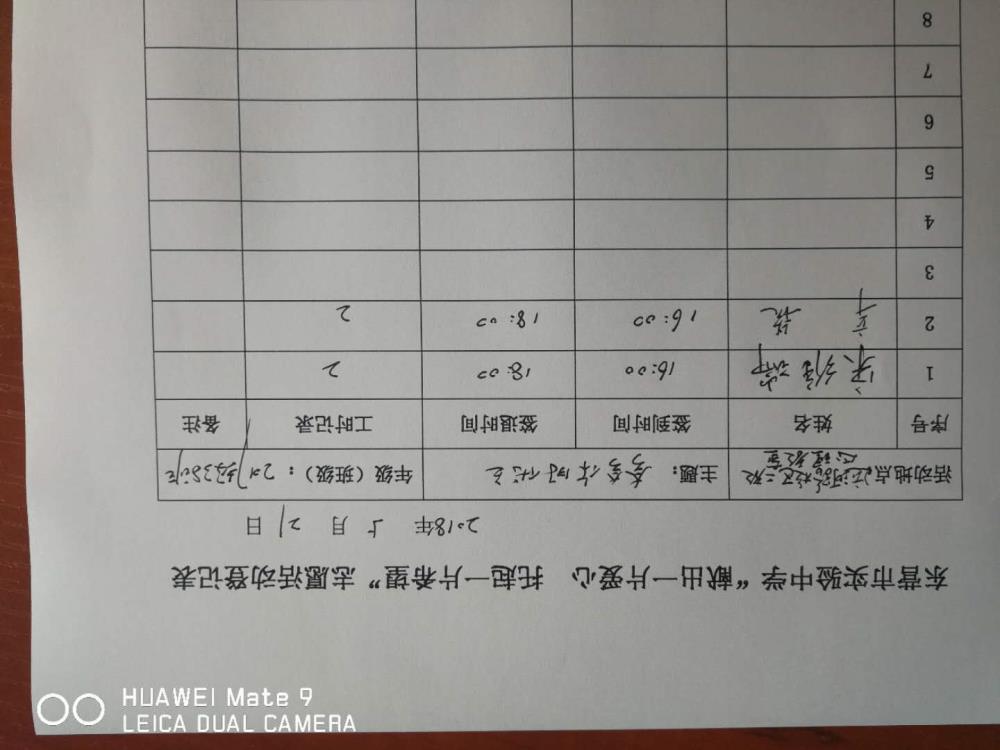 东营市实验中学“献出一片爱心 托起一片希望”志愿活动登记表
2018年 5 月 21 日
活动地点 主题： 年级（班级）：2017级38班
序号 姓名 签到时间 签退时间 工时记录 备注
1 16:00 18:00 2
2 16:00 18:00 2
3
4
5
6
7
8
HUAWEI Mate 9
LEICA DUAL CAMERA